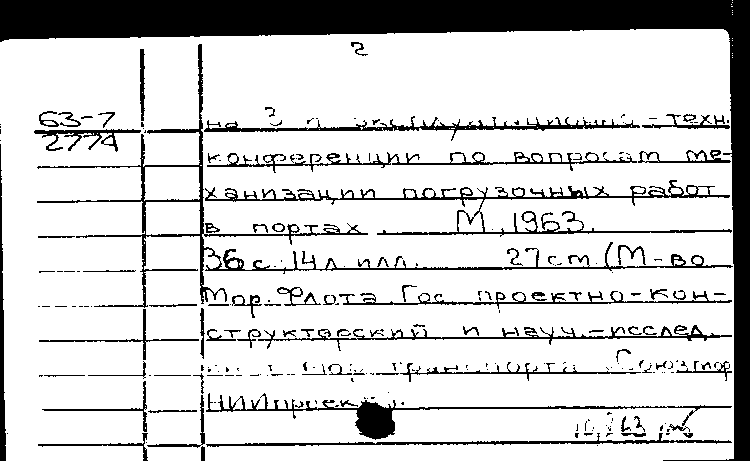 2
63-7
2774
на 3 й эксплуатационно-техн.
конференции по вопросам ме-
ханизации погрузочных работ
в портах. М, 1963.
36 с., 14 л илл. 27 cm (М-во
Мор. Флота. Гос. проектно-кон-
структорский и науч.-исслед.
мор. транспорта „Союзмор
НИИпроект").